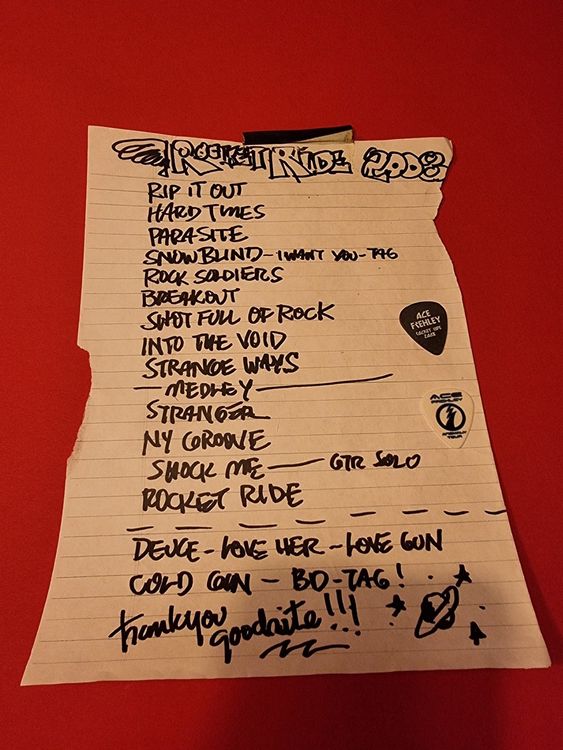 ROCKET RIDE 2008
RIP IT OUT
HARD TIMES
PARASITE
SNOWBLIND - I WANT YOU - TAG
ROCK SOLDIERS
BREAKOUT
SHOT FULL OF ROCK
INTO THE VOID
STRANGE WAYS
MEDLEY
STRANGER
NY GROOVE
SHOCK ME — GTR SOLO
ROCKET RIDE
DEUCE - LOVE HER - LOVE GUN
COLD GIN - BD-TAG!
thankyou
goodnite!!!
ACE
FREHLEY
ROCKET RIDE
2008
ACE
FREHLEY
TOUR